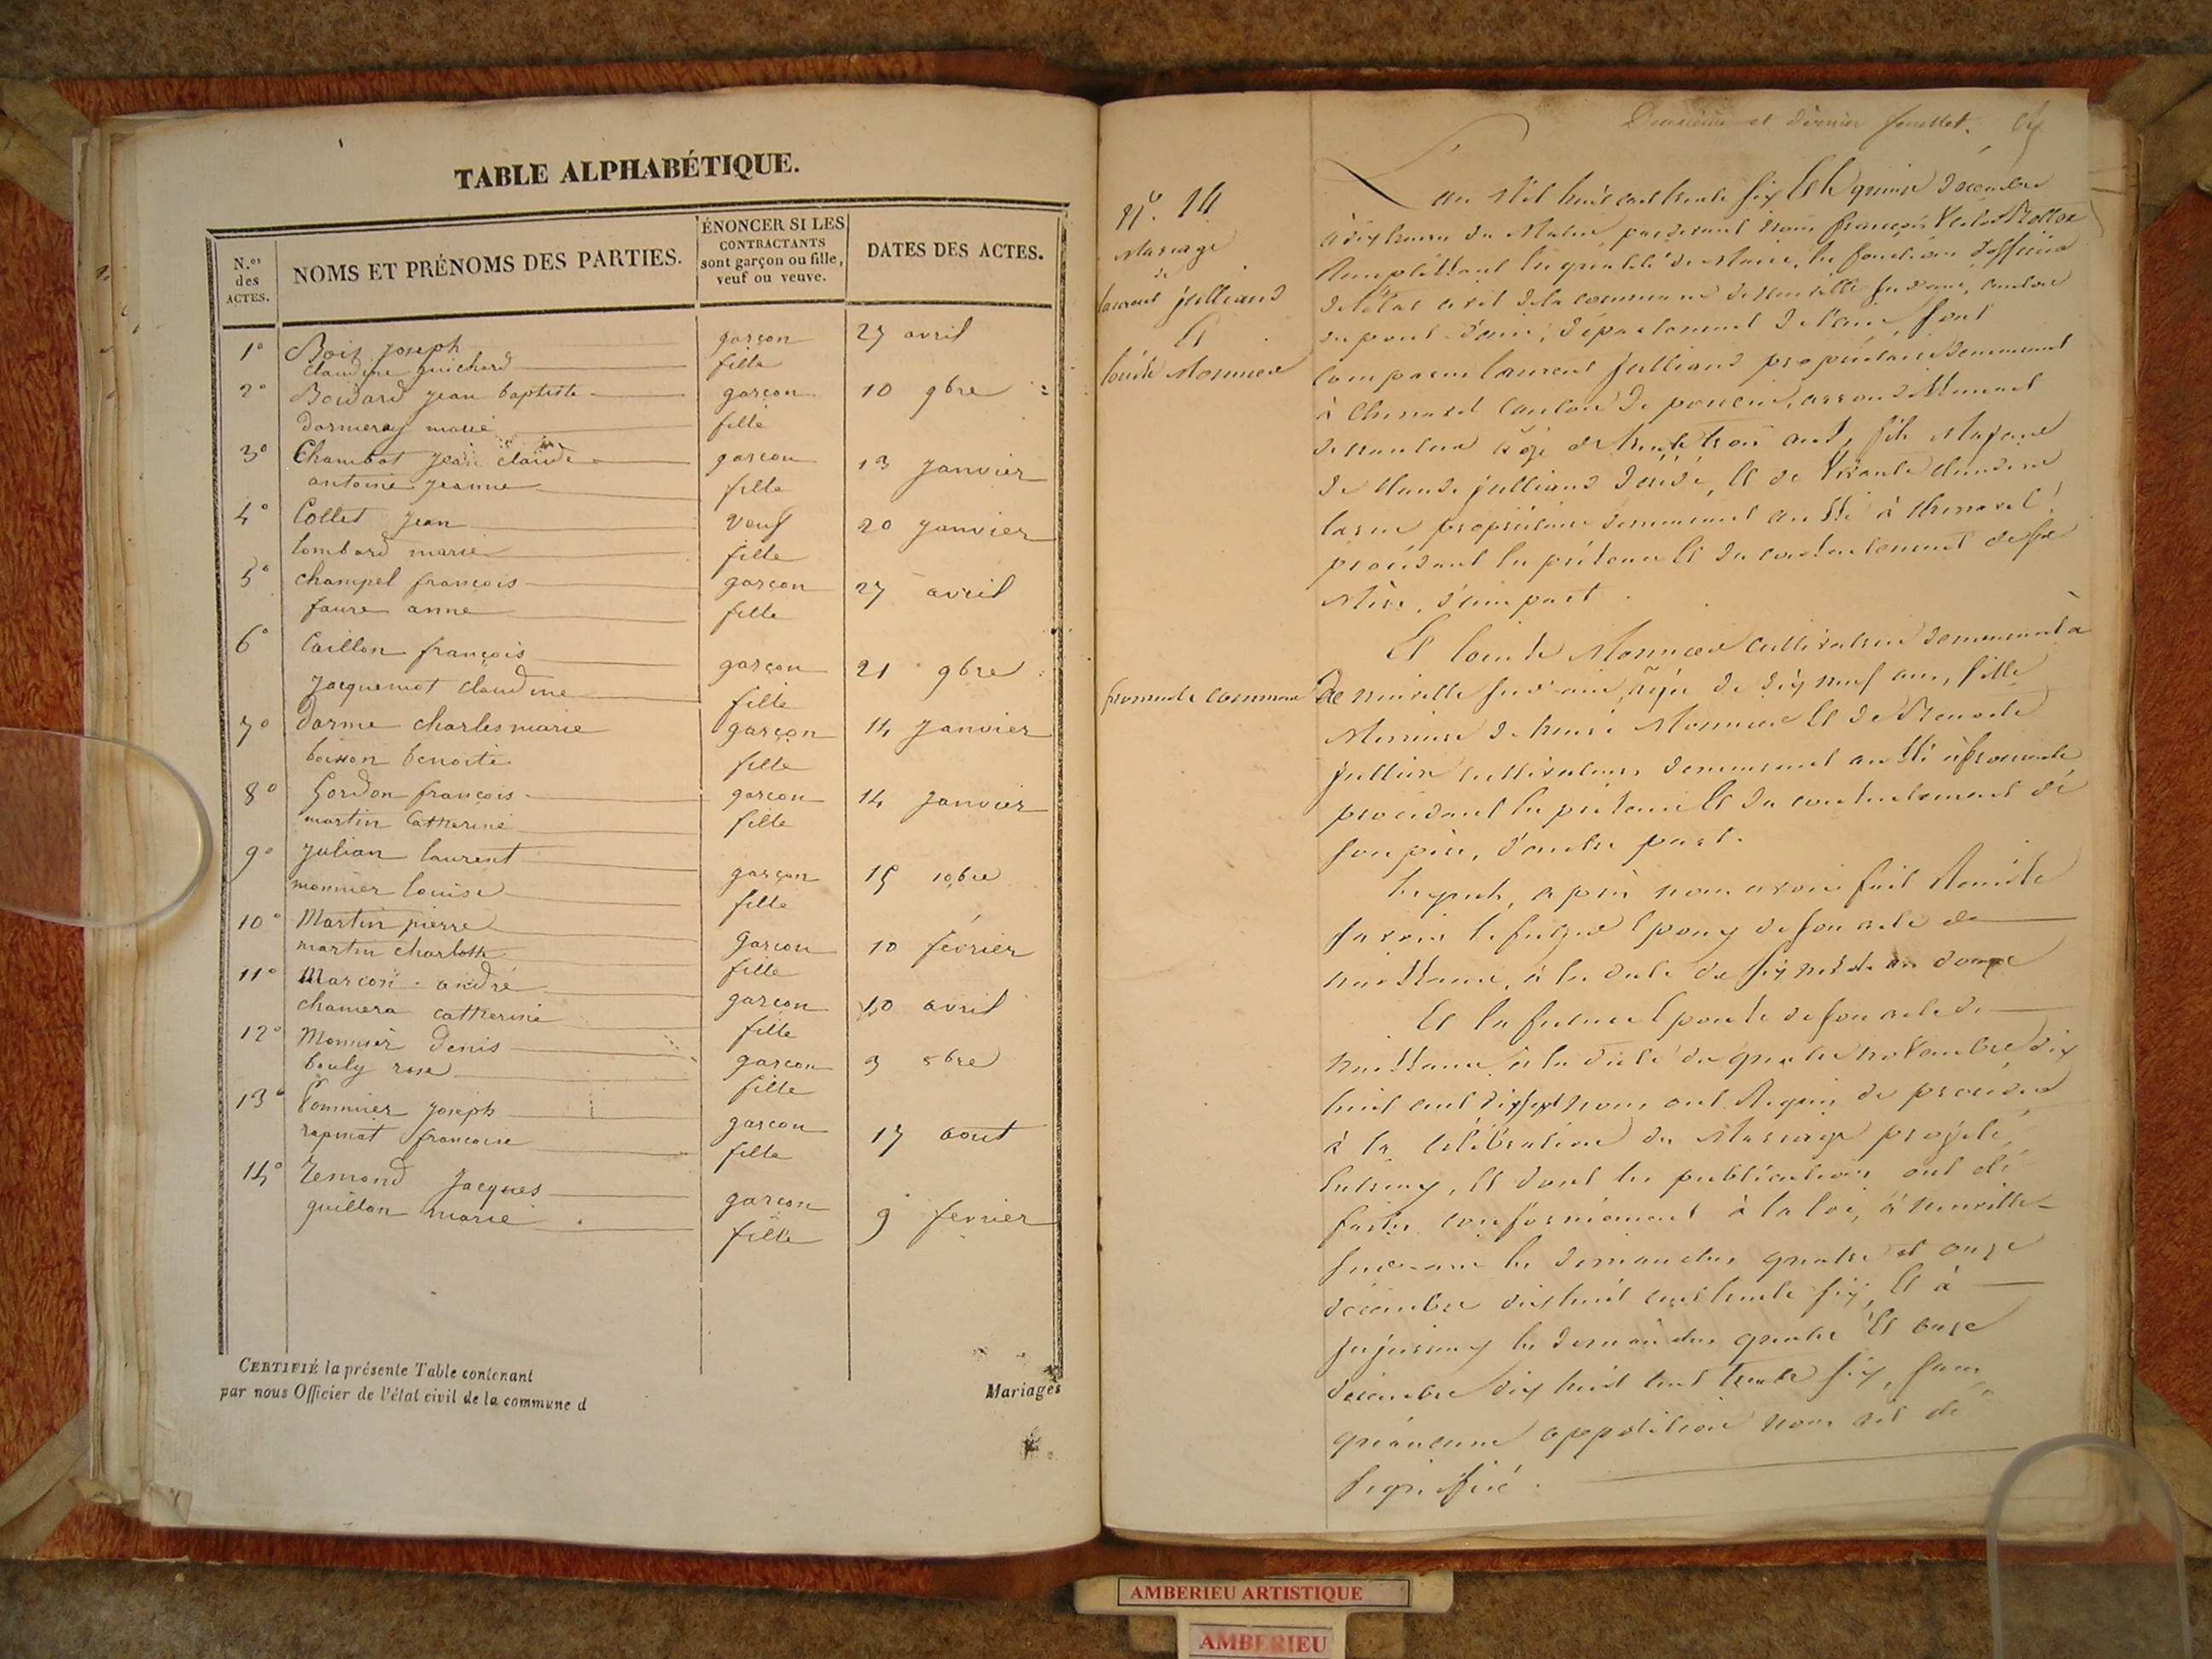 TABLE ALPHABÉTIQUE.
N.os des ACTES.
NOMS ET PRÉNOMS DES PARTIES.
ÉNONCER SI LES CONTRACTANTS sont garçon ou fille, veuf ou veuve.
DATES DES ACTES.
1° joseph garçon 27 avril
claudine guichard fille
2° jean baptiste garçon 10 9bre
marie fille
3° Chambot jean claude garçon 13 janvier
antoine jeanne fille
4° Collet jean veuf 20 janvier
lombard marie fille
5° champel françois garçon 27 avril
faure anne fille
6° Caillon françois garçon 21 9bre
jacquemot claudine fille
7° dorme charles marie garçon 14 janvier
benoite fille
8° gordon françois garçon 14 janvier
martin Catherine fille
9° julian laurent garçon 15 10bre
monnier louise fille
10° Martin pierre garçon 10 février
martin charlotte fille
11° Marcon andré garçon 10 avril
chamera catherine fille
12° Monnier denis garçon 3 8bre
bouly rose fille
13° Pommier joseph garçon 17 aout
francoise fille
14° Remond Jacques garçon 9 fevrier
guillon marie fille
CERTIFIÉ la présente Table contenant
par nous Officier de l'état civil de la commune d
Mariages
Deuxième et dernier feuillet.
N°. 14
Mariage
de
laurent julliand
Et
louise Monnier
L'an Mil huit cent trente six Et le quinze décembre
à dix heures du Matin pardevant nous françois
la qualité de Maire, les fonctions d'officier
de l'état civil de la commune de neuville sur ain, canton
du pont d'ain, département de l'ain, sont
comparus laurent julliand propriétaire demeurant
à Chenavel canton de poncin, arrondissement
de nantua âgé de trente trois ans, fils Majeur
de claude julliand décédé, Et de claudine
propriétaire demeurant aussi à Chenavel
procédant en présence Et du consentement de sa
Mère, d'une part.
Et louise Monnier cultivatrice demeurant à
fromente commune
De neuville sur ain, âgée de dix neuf ans, fille
Mineure de Monnier Et de Benoite
cultivateurs demeurant aussi à fromente
procédant en présence Et du consentement de
son père, d'autre part.
Lesquels, après nous avoir fait Remise
savoir le futur Epoux de son acte de
naissance, à la date du six an douze
Et la future Epouse de son acte de
naissance à la date du quatre novembre dix
huit cent dix sept nous ont Requis de procéder
à la célébration du Mariage projeté
Entr'eux, Et dont les publications ont été
faites conformément à la loi, à neuville
sur ain les dimanches quatre et onze
décembre dix huit cent trente six, Et à
jujurieux les dimanches quatre Et onze
décembre dix huit cent trente six, sans
qu'aucune opposition nous ait été
signifiée.
AMBERIEU ARTISTIQUE
AMBERIEU